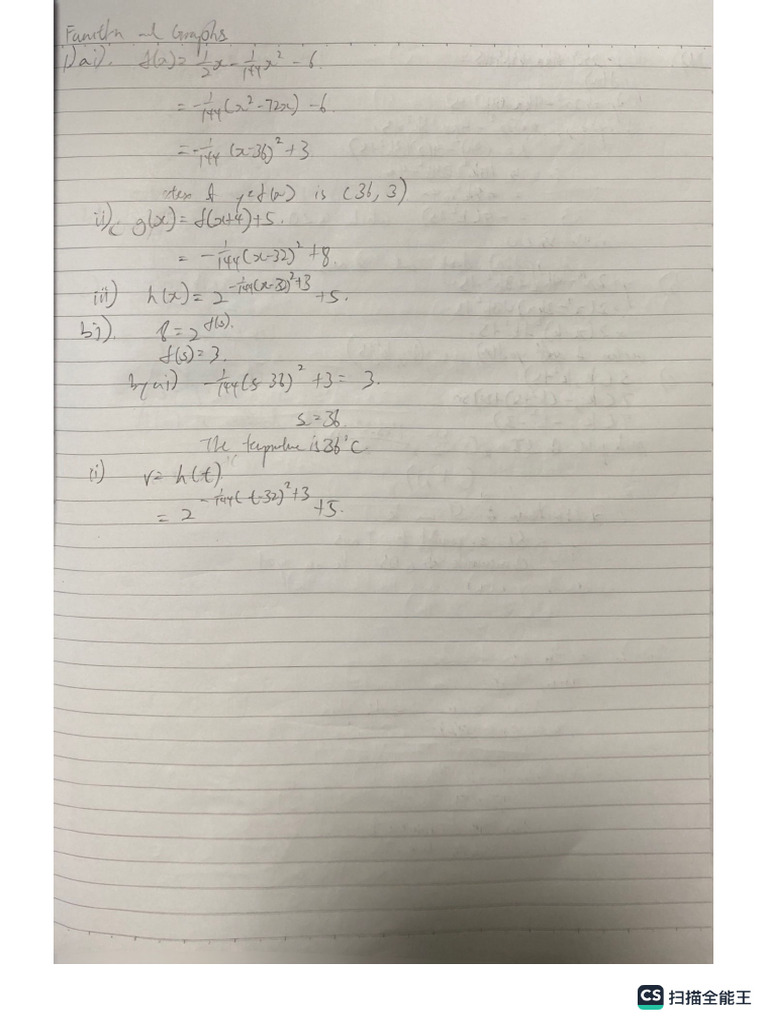 Function and Graphs
1)ai). f(x)=\frac{1}{2}x-\frac{1}{144}x^2-6.
=-\frac{1}{144}(x^2-72x)-6
=-\frac{1}{144}(x-36)^2+3
vertex of y=f(x) is (36,3)
ii) g(x)=f(x+4)+5.
=-\frac{1}{144}(x-32)^2+8.
iii) h(x)=2^{-\frac{1}{144}(x-32)^2+3}+5.
bi). 8=2^{f(s)}.
f(s)=3.
by ai) -\frac{1}{144}(s-36)^2+3=3.
s=36
The temperature is 36°C
(i) v=h(t)
=2^{-\frac{1}{144}(t-32)^2+3}+5.
CS 扫描全能王